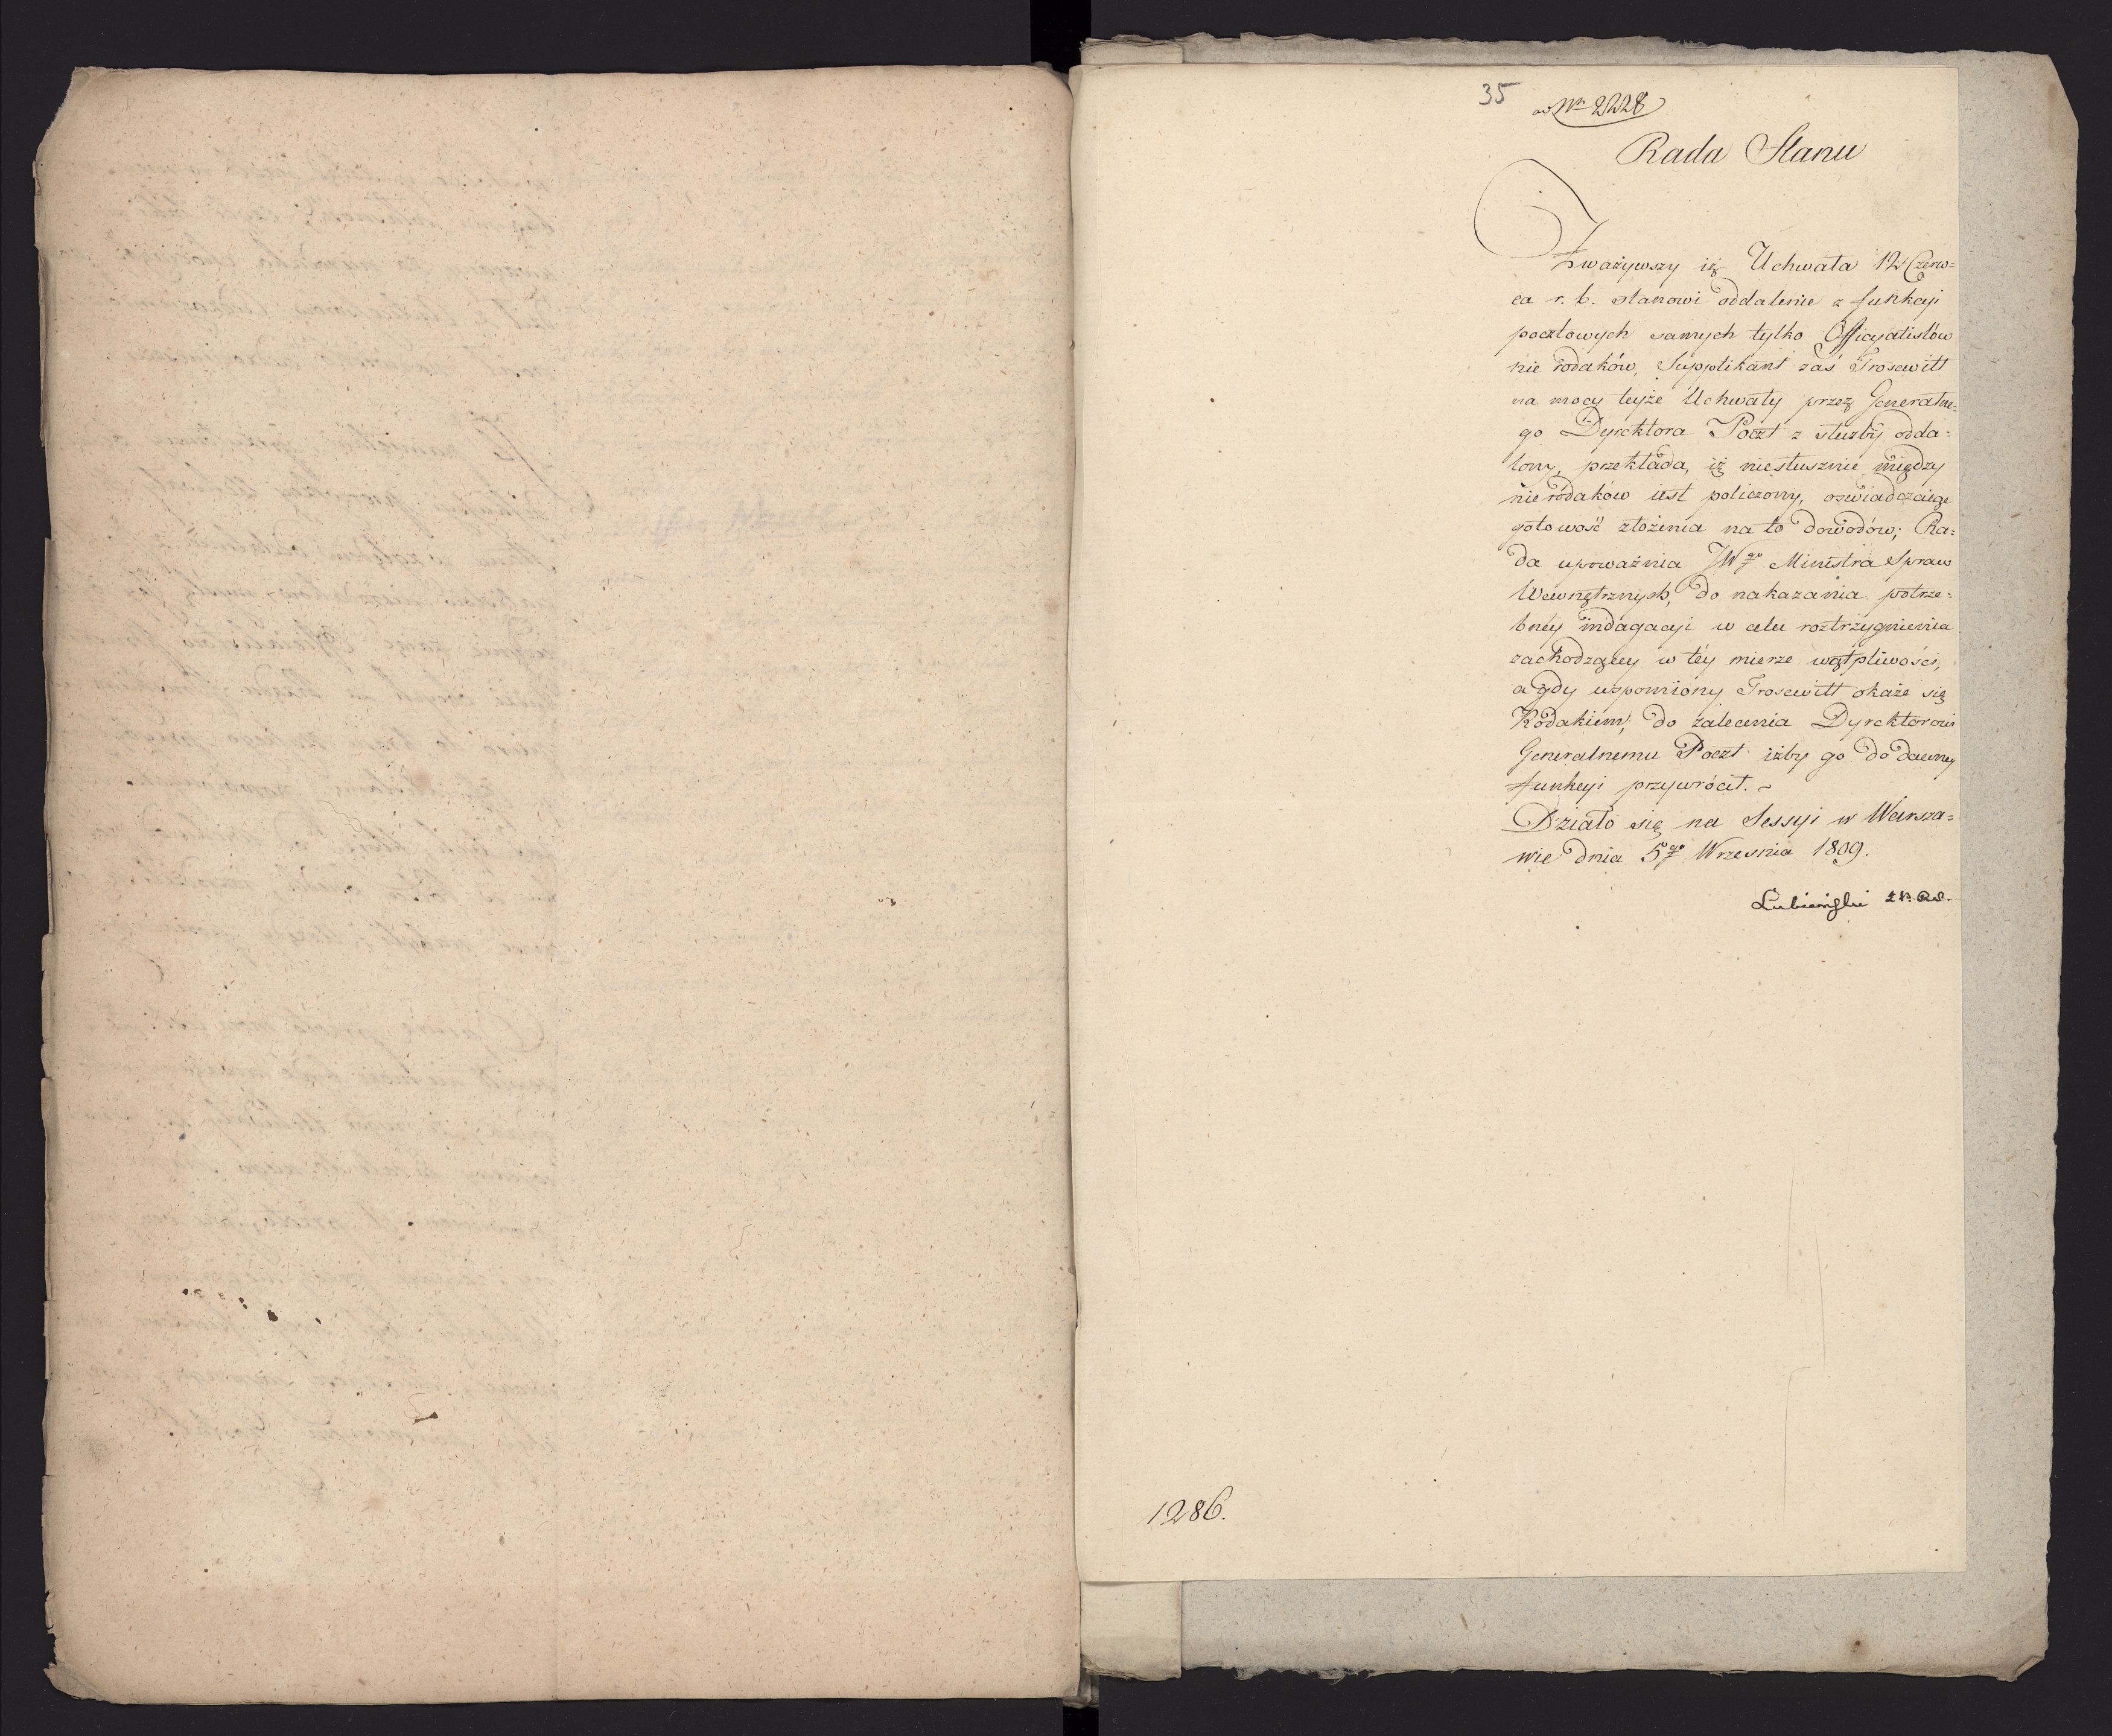 35
ad Nr 2228
Rada Stanu
Zważywszy iż Uchwała 12 Czerw=
ca r. b. stanowi oddalenie z funkcyi
pocztowych samych tylko Officyalistów
nie rodaków, Supplikant zaś Trosewitt
na mocy teyże Uchwały przez Generalne=
go Dyrektora Poczt z służby odda=
lony, przekłada, iż niesłusznie między
nie rodaków iest policzony, oswiadczaiąc
gotowość złożenia na to dowodów; Ra=
da upoważnia JWgo Ministra Spraw
Wewnętrznych, do nakazania potrze=
bney indagacyi w celu roztrzygnienia
zachodzącey w téy mierze wątpliwości,
a gdy wspomiony Trosewitt okaże się
Rodakiem, do zalecenia Dyrektorowi
Generalnemu Poczt iżby go do dawney
funkcyi przywrócił. ~
Działo się na Sessyi w Warsza=
wie dnia 5go Wrzesnia 1809.
Lubieński
1286.